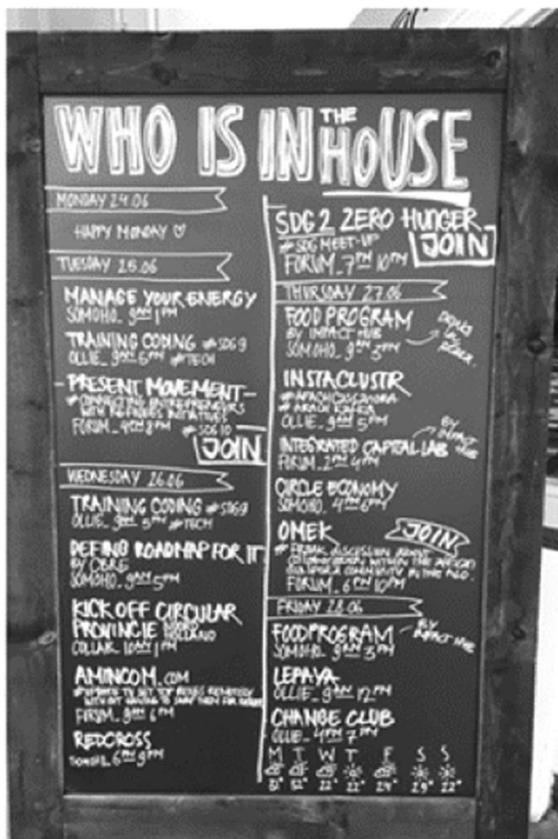 WHO IS IN THE HOUSE
MONDAY 24.06
HAPPY MONDAY ♡
TUESDAY 25.06
MANAGE YOUR ENERGY
SOMOHO_ 9AM 1PM
TRAINING CODING #SDG9
OLLIE_ 9AM 5PM #TECH
- PRESENT MOVEMENT -
# CONNECTING ENTREPRENEURS
WITH REFUGEES INITIATIVES
FORUM_ 4PM 8PM #SDG 10
JOIN
WEDNESDAY 26.06
TRAINING CODING #SDG9
OLLIE_ 9AM 5PM #TECH
DEFINO ROADMAP FOR IT
BY CBRE
SOMOHO_ 9AM 5PM
KICK OFF CIRCULAR
PROVINCIE NOORD
HOLLAND
COLLAB_ 10AM 1PM
AMINOCOM.COM
FORUM_ 9AM 6PM
REDCROSS
SOMOHO_ 6PM 9PM
SDG 2 ZERO HUNGER
# SDG MEET-UP
FORUM_ 7PM 10PM
JOIN
THURSDAY 27.06
FOOD PROGRAM
BY IMPACT HUB
SOMOHO_ 9AM 3PM
INSTACLUSTR
# APACHE CASSANDRA
# APACHE KAFKA
OLLIE_ 9AM 5PM
INTEGRATED CAPITAL LAB
BY IMPACT HUB
FORUM_ 2PM 4PM
CIRCLE ECONOMY
SOMOHO_ 4PM 6PM
OMEK
JOIN
DISCUSSION ABOUT
WITHIN THE AFRICAN
COMMUNITY IN THE
FORUM_ 6PM 10PM
FRIDAY 28.06
FOODPROGRAM
BY IMPACT HUB
SOMOHO_ 9AM 3PM
LEPAYA
OLLIE_ 9AM 12PM
CHANGE CLUB
OLLIE_ 4PM 7PM
M T W T F S S
22° 22° 24° 29° 22°